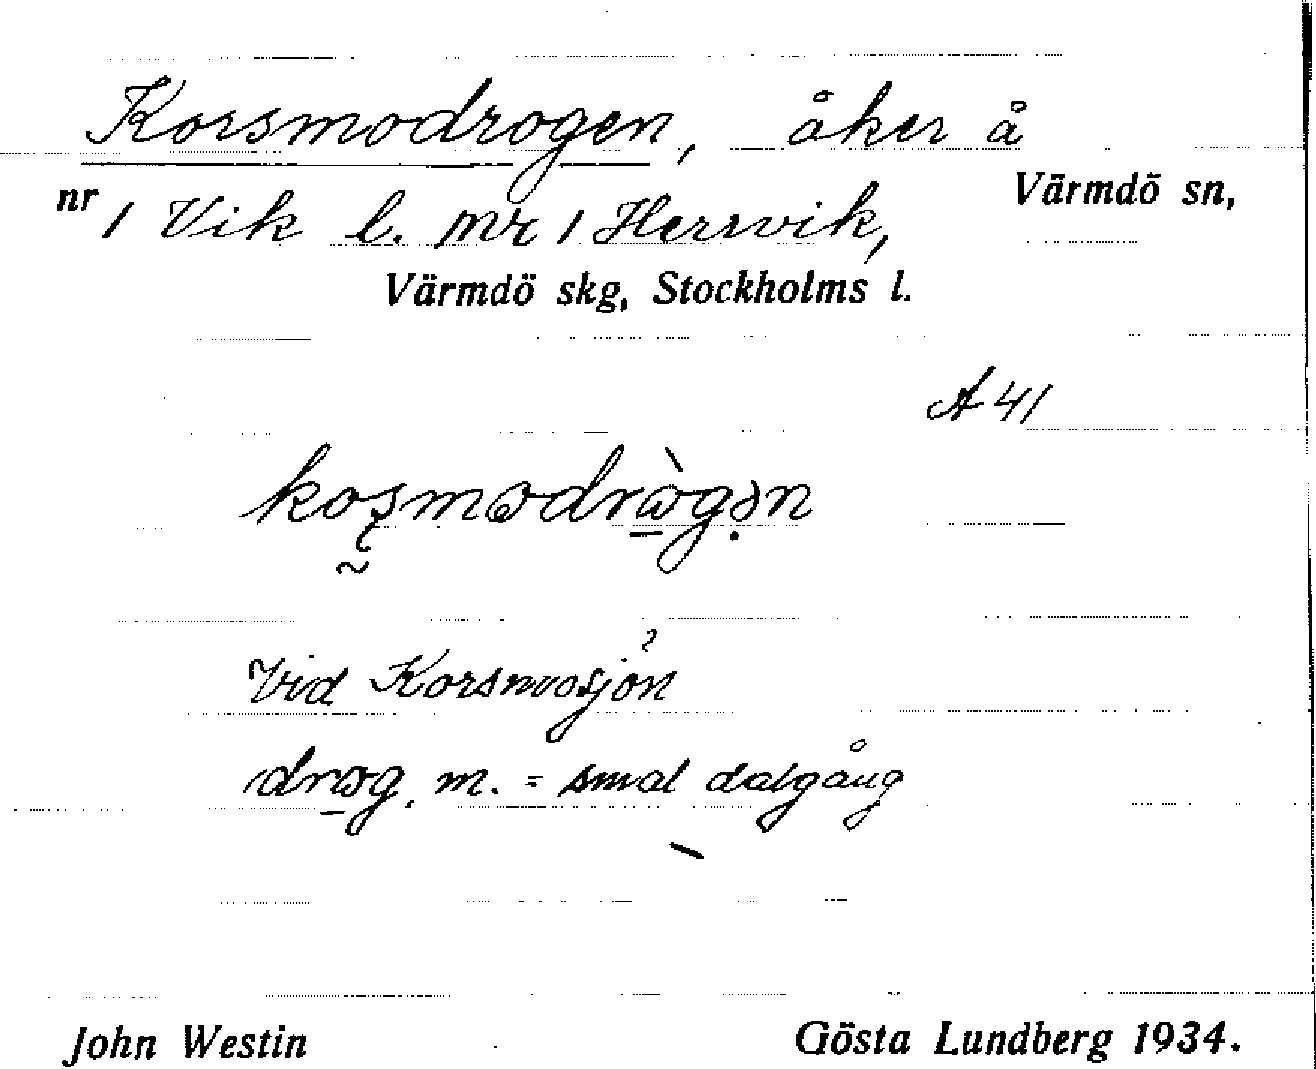 Korsmodrogen, åker å
nr 1 Vik l. nr 1 Herrvik, Värmdö sn,
Värmdö skg, Stockholms l.
A 41
Vid Korsmosjön
drog, m. = smal dalgång
John Westin Gösta Lundberg 1934.